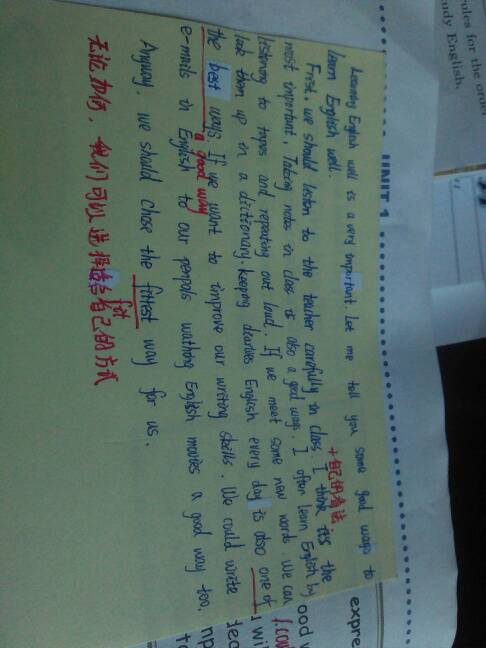 Learning English well is a very important. Let me tell you some good ways to
learn English well.
+自己的看法:
First, we should listen to the teacher carefully in class. I think it's the
most important. Taking notes in class is also a good ways. I often learn English by
listening to tapes and repeating out loud. If we meet some new words. We can
look them up in a dictionary. keeping diaries English every day is also one of
the best ways. If we want to improve our writing skills. We could write
a good way
e-mails in English to our penpals wathing English movies a good way too.
Anyway, we should chose the fittest way for us.
fit
无论如何,我们可以选择适合自己的方式
UNIT 1
expre
ood
rules for the
udy English.